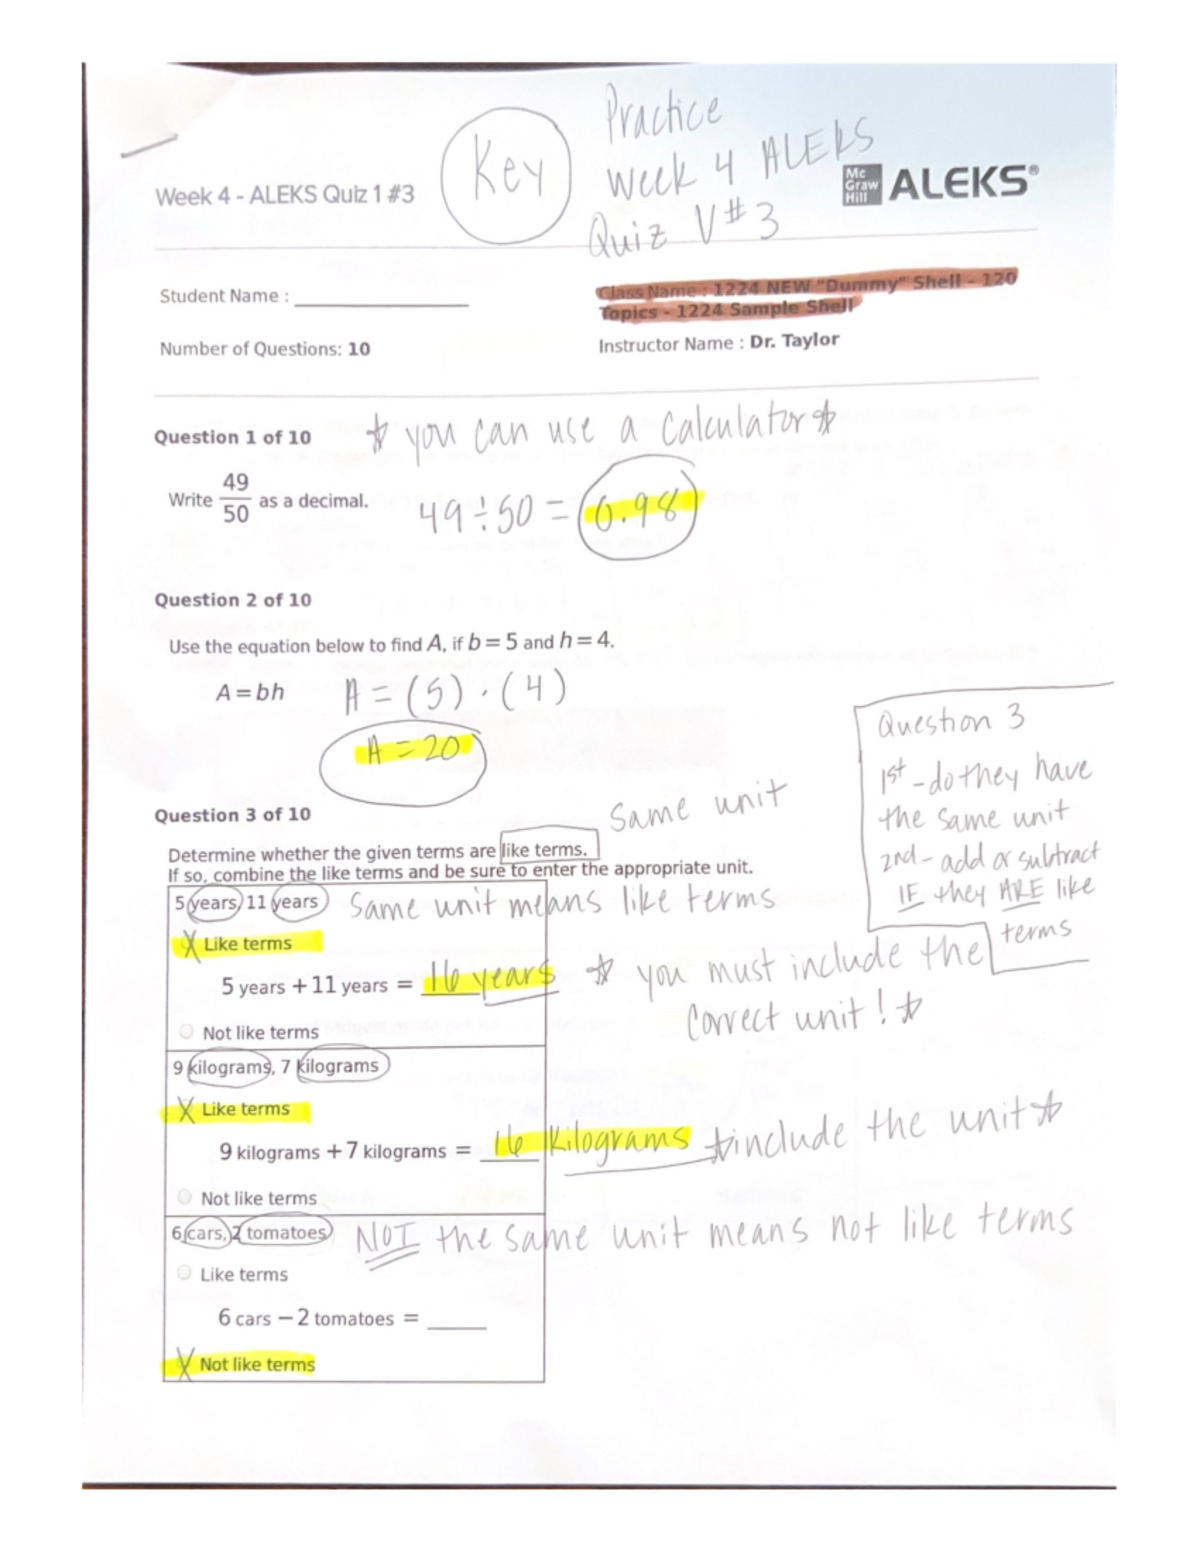 Key
Practice
Week 4 ALEKS
Quiz V#3
Week 4 - ALEKS Quiz 1 #3
Mc Graw Hill ALEKS®
Student Name : ____________
Class Name : 1224 NEW "Dummy" Shell - 120
Topics - 1224 Sample Shell
Number of Questions: 10
Instructor Name : Dr. Taylor
Question 1 of 10
☆ you can use a calculator ☆
Write 49/50 as a decimal.
49 ÷ 50 = 0.98
Question 2 of 10
Use the equation below to find A, if b = 5 and h = 4.
A = bh
A = (5) · (4)
A = 20
Question 3
1st - do they have
the same unit
2nd - add or subtract
IF they ARE like
terms
Question 3 of 10
Same unit
Determine whether the given terms are like terms.
If so, combine the like terms and be sure to enter the appropriate unit.
5 years, 11 years
Same unit means like terms
X Like terms
5 years + 11 years = 16 years
☆ you must include the
correct unit! ☆
Not like terms
9 kilograms, 7 kilograms
X Like terms
9 kilograms + 7 kilograms = 16 kilograms
☆ include the unit ☆
Not like terms
6 cars, 2 tomatoes
NOT the same unit means not like terms
Like terms
6 cars − 2 tomatoes = ____
X Not like terms